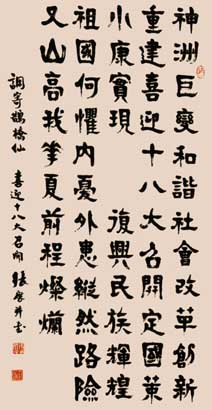 神洲巨變和諧社會改革創新
重建喜迎十八大召開定國策
小康實現　復興民族輝煌
祖國何懼內憂外患縱然路險
又山高我華夏前程燦爛
調寄鵲橋仙　喜迎十八大召開　張